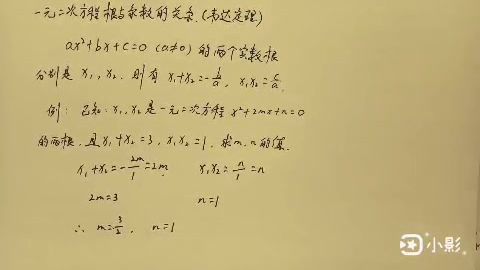 一元二次方程根与系数的关系(韦达定理)
ax²+bx+c=0 (a≠0) 的两个实数根
分别是 x₁,x₂. 则有 x₁+x₂=-b/a, x₁x₂=c/a.
例: 已知: x₁,x₂ 是一元二次方程 x²+2mx+n=0
的两根, 且 x₁+x₂=3, x₁x₂=1, 求m.n的值.
x₁+x₂=-2m/1=2m x₁x₂=n/1=n
2m=3 n=1
∴ m=3/2, n=1
小影